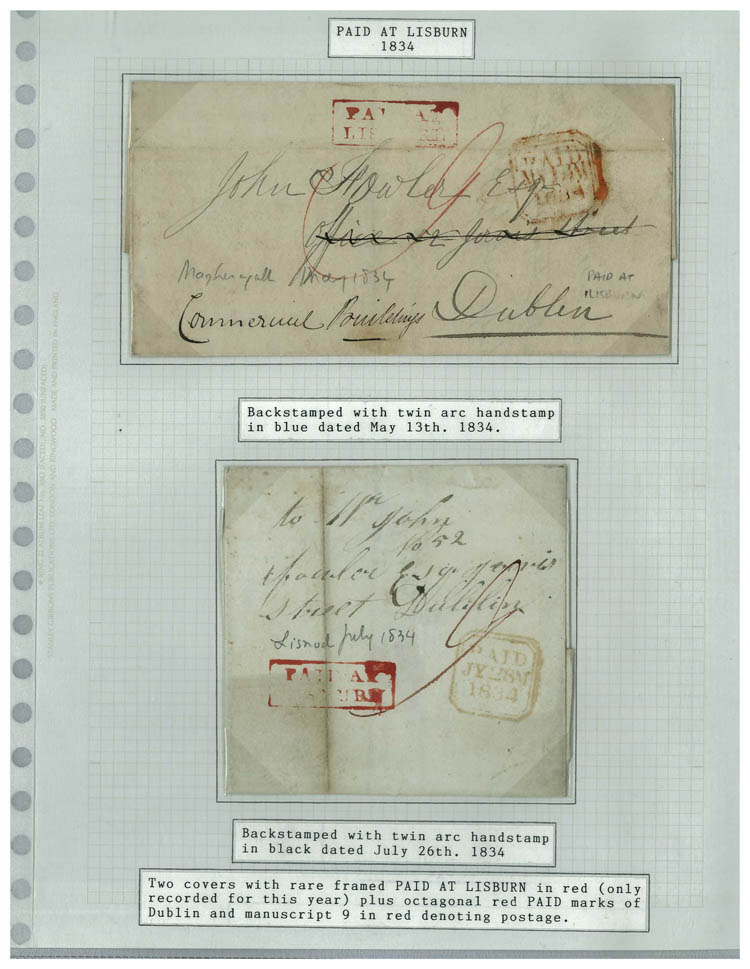 PAID AT LISBURN
1834
PAID AT
LISBURN
PAID
1834
John Fowler Esqr
Office 52 Jervis Street
Magheragall May 1834
PAID AT
LISBURN
Commercial Buildings Dublin
Backstamped with twin arc handstamp
in blue dated May 13th. 1834.
to Mr John
No 52
fowler Esqr Jervis
Street Dublin
9
Lisnod July 1834
PAID AT
LISBURN
PAID
JY 28 M
1834
Backstamped with twin arc handstamp
in black dated July 26th. 1834
Two covers with rare framed PAID AT LISBURN in red (only
recorded for this year) plus octagonal red PAID marks of
Dublin and manuscript 9 in red denoting postage.